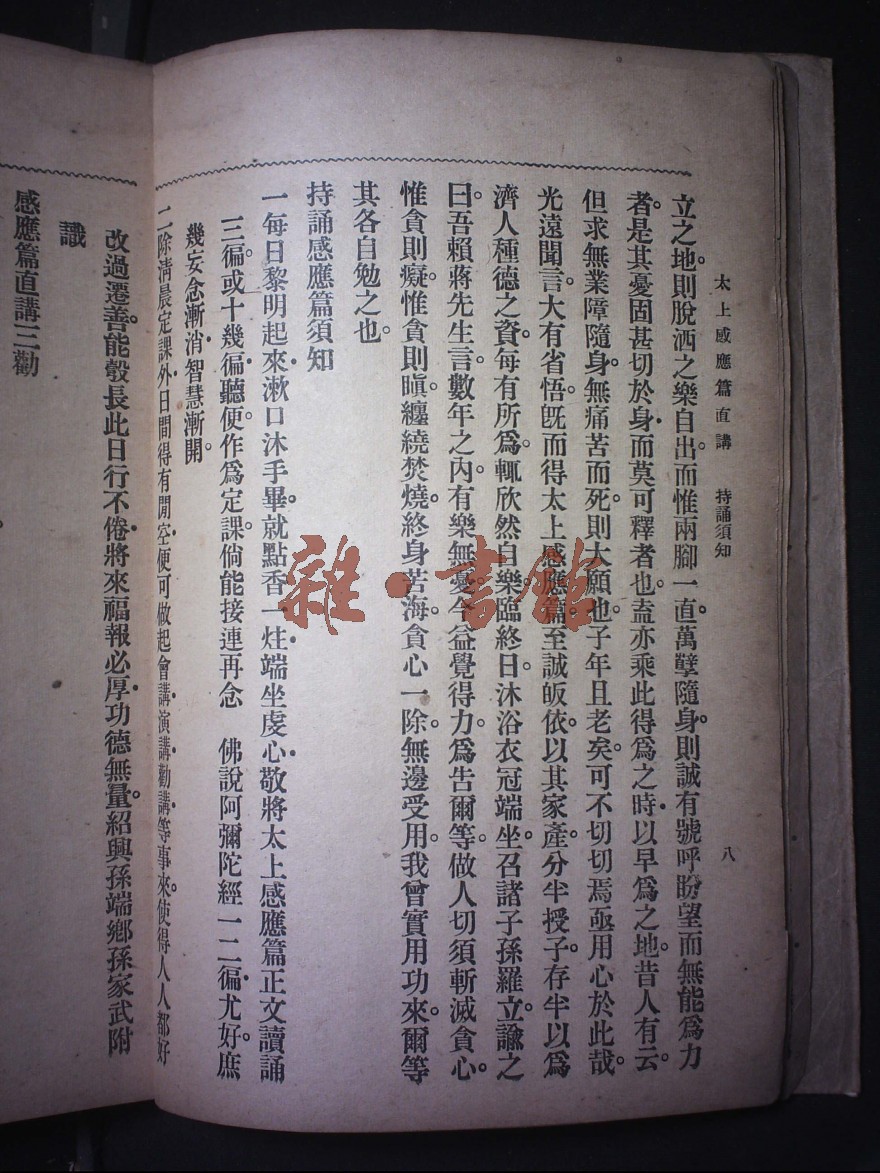 太上感應篇直講　持誦須知　八
立之地則脫洒之樂自出。而惟兩腳一直。萬孽隨身。則誠有號呼盼望而無能爲力
者。是其憂固甚切於身。而莫可釋者也。蓋亦乘此得爲之時。以早爲之地。昔人有云。
但求無業障隨身。無痛苦而死。則大願也。子年且老矣。可不切切焉亟用心於此哉。
光遠聞言。大有省悟。旣而得太上感應篇。至誠皈依。以其家產。分半授子。存半以爲
濟人種德之資。每有所爲。輒欣然自樂。臨終日。沐浴衣冠端坐。召諸子孫羅立。諭之
曰。吾賴蔣先生言。數年之內。有樂無憂。今益覺得力。爲告爾等。做人切須斬滅貪心。
惟貪則癡。惟貪則瞋。纏繞焚燒。終身苦海。貪心一除。無邊受用。我曾實用功來。爾等
其各自勉之也。
持誦感應篇須知
一每日黎明起來漱口沐手畢。就點香一炷端坐虔心。敬將太上感應篇正文讀誦
三徧。或十幾徧。聽便。作爲定課。倘能接連再念　佛說阿彌陀經一二徧。尤好。庶
幾妄念漸消。智慧漸開。
二除淸晨定課外。日間得有閒空。便可做起會講。演講。勸講。等事來。使得人人都好
改過遷善。能彀長此日行不倦。將來福報必厚。功德無量。紹興孫端鄉孫家武附
識
感應篇直講三勸
雜·書館